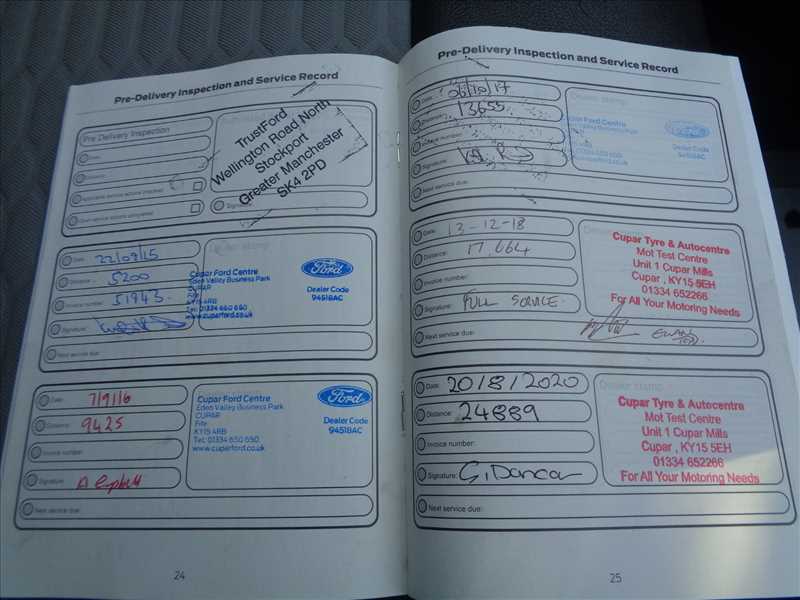 Pre-Delivery Inspection and Service Record
Pre Delivery Inspection
Date:
Distance:
Applicable service actions checked
Open service actions completed
TrustFord
Wellington Road North
Stockport
Greater Manchester
SK4 2PD
Signature:
Date: 22/09/15
Distance: 5200
Invoice number: 51943.
Signature:
Next service due:
Cupar Ford Centre
Eden Valley Business Park
CUPAR
Fife
KY15 4RB
Tel: 01334 650 650
www.cuparford.co.uk
Ford
Dealer Code
94518AC
Date: 7/9/16
Distance: 9425
Invoice number:
Signature:
Next service due:
Cupar Ford Centre
Eden Valley Business Park
CUPAR
Fife
KY15 4RB
Tel: 01334 650 650
www.cuparford.co.uk
Ford
Dealer Code
94518AC
24
Pre-Delivery Inspection and Service Record
Date: 06/10/17
Distance: 13655
Invoice number:
Signature:
Next service due:
Dealer stamp
Cupar Ford Centre
Eden Valley Business Park
Ford
Dealer Code
94518AC
Date: 13-12-18
Distance: 17,664
Invoice number:
Signature: FULL SERVICE.
Next service due:
Cupar Tyre & Autocentre
Mot Test Centre
Unit 1 Cupar Mills
Cupar, KY15 5EH
01334 652266
For All Your Motoring Needs
Date: 20/8/2020
Distance: 24889
Invoice number:
Signature: G. Duncan
Next service due:
Dealer stamp
Cupar Tyre & Autocentre
Mot Test Centre
Unit 1 Cupar Mills
Cupar , KY15 5EH
01334 652266
For All Your Motoring Needs
25